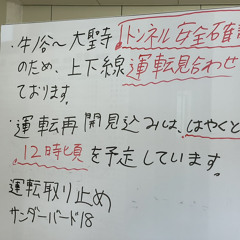 ・牛ノ谷〜大聖寺トンネル安全確認
のため、上下線運転見合わせ
ております。
・運転再開見込みは、はやくと
12時頃を予定しています。
運転取り止め
サンダーバード18